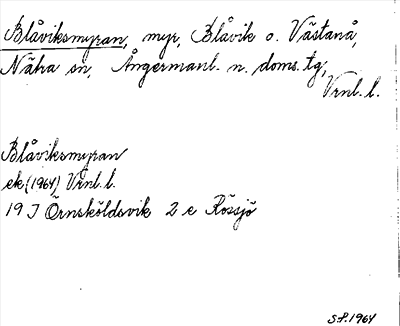 Blåviksmyran, myr, Blåvik o. Västanå,
Nätra sn, Ångermanl. n. doms. tg,
Vrnl. l.
Blåviksmyran
ek (1964) Vrnl. l.
19 J Örnsköldsvik 2 e Rössjö
S.F. 1964